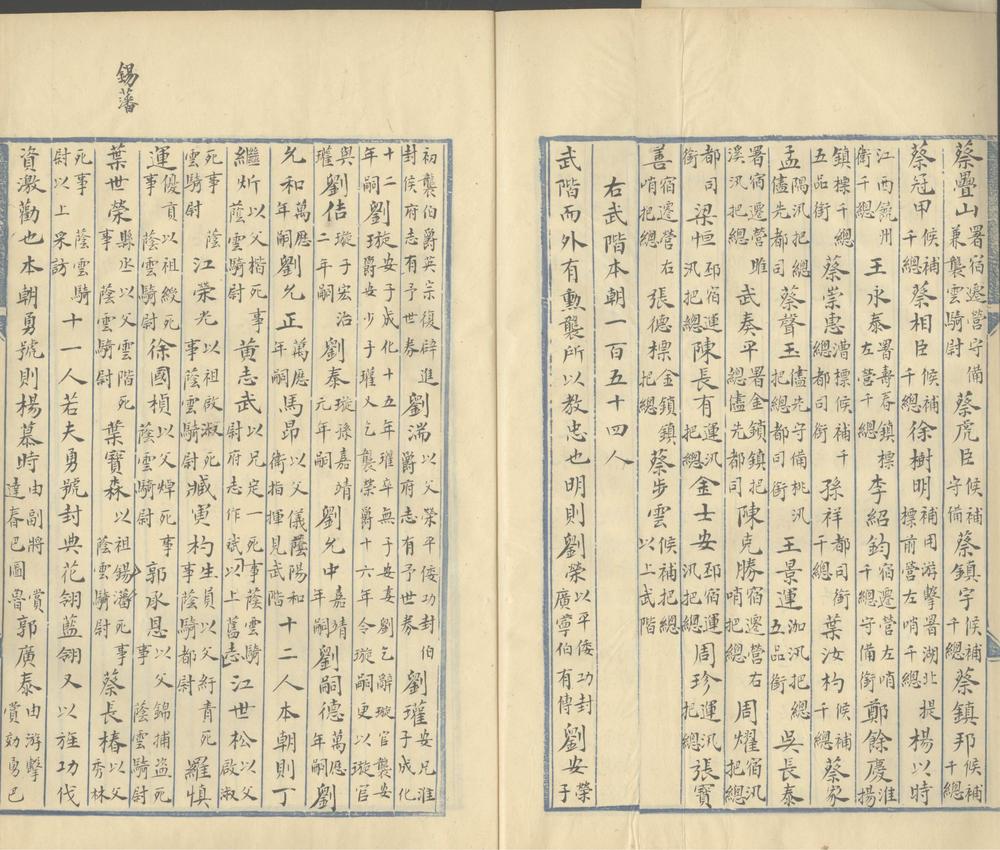 蔡疊山署宿遷營守備兼襲雲騎尉蔡虎臣候補守備蔡鎮宇候補千總蔡鎮邦候補千總
蔡冠甲候補千總蔡相臣候補千總徐樹明補用游擊署湖北提標前營左哨千總楊以時
江西饒州衛千總王永泰署壽春鎮標左營千總李紹鈞宿遷營左哨千總守備銜鄭餘慶淮揚
鎮標千總五品銜蔡崇惠漕標候補千總都司銜孫祥都司銜千總葉汝杓候補千總蔡家
孟隅汛把總儘先都司蔡聲玉儘先守備桃汛把總都司銜王景運泇汛把總五品銜吳長泰
署宿遷營睢溪汛把總武奏平署金鎖鎮把總儘先都司陳克勝宿遷營右哨把總周燿宿汛把總
都司銜梁恒邳宿運汛把總陳長有運汛把總金士安邳宿運汛把總周珍運汛把總張寶
善宿遷營右哨把總張德標金鎖鎮把總蔡步雲候補把總以上武階
右武階本朝一百五十四人
武階而外有勳襲所以教忠也明則劉榮以平倭功封廣寧伯有傳劉安榮子
初襲伯爵英宗復辟進封侯府志有予世券劉湍以父榮平倭功封伯爵府志有予世券劉瓘安兄淮子成化
十二年嗣劉璇安子成化十五年瓘卒無子安妾劉乞辭璇官襲安爵安少子瓘又乞襲榮爵十六年令璇更以璇官
與瓘劉佶璇子宏治二年嗣劉泰璇孫嘉靖元年嗣劉允中嘉靖年嗣劉嗣德萬歷年嗣劉
允和萬歷年嗣劉允正萬歷年嗣馬昂以父儀蔭陽和衛指揮見武階十二人本朝則丁
繼炘以父楷死事蔭雲騎尉黄志武以兄定一死事蔭雲騎尉府志作斌以上舊志江世松以父啟淑
死事蔭雲騎尉江榮光以祖啟淑死事蔭雲騎尉臧寅杓生員以父紆青死事蔭騎都尉羅慎
運優貢以祖綬死事蔭雲騎尉徐國楨以父焯死事蔭雲騎尉郭承恩以父錦捕盜死事蔭雲騎尉
錫藩
葉世榮縣丞以父雲階死事蔭雲騎尉葉寶森以祖錫潘死事蔭雲騎尉蔡長椿以父秀林
死事蔭雲騎尉以上采訪十一人若夫勇號封典花翎藍翎又以旌功伐
資激勸也本朝勇號則楊慕時由副將賞達春巴圖魯郭廣泰由游擊賞効勇巴